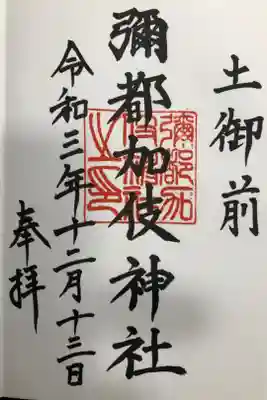 土御前
彌都加伎神社
令和三年十二月十三日
奉拝